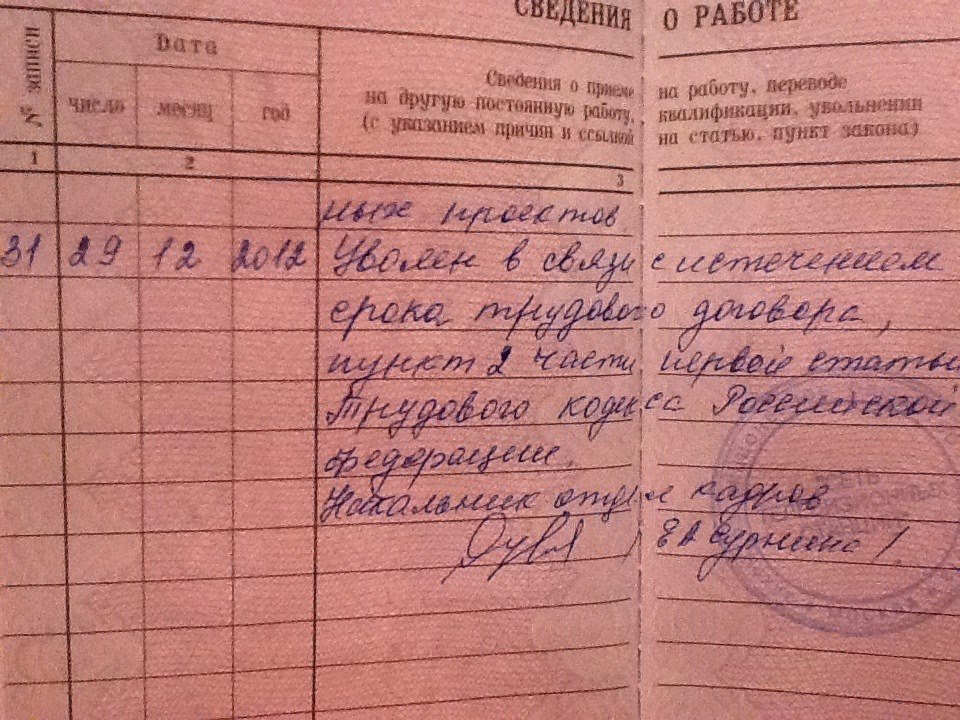 СВЕДЕНИЯ О РАБОТЕ
№ записи
Дата
Сведения о приеме на работу, переводе
на другую постоянную работу, квалификации, увольнении
(с указанием причин и ссылкой на статью, пункт закона)
число месяц год
1 2 3
ных проектов
31 29 12 2012 Уволен в связи с истечением
срока трудового договора,
пункт 2 части первой статьи
Трудового кодекса Российской
Федерации.
Начальник отдела кадров
/ Е А Сурнина /